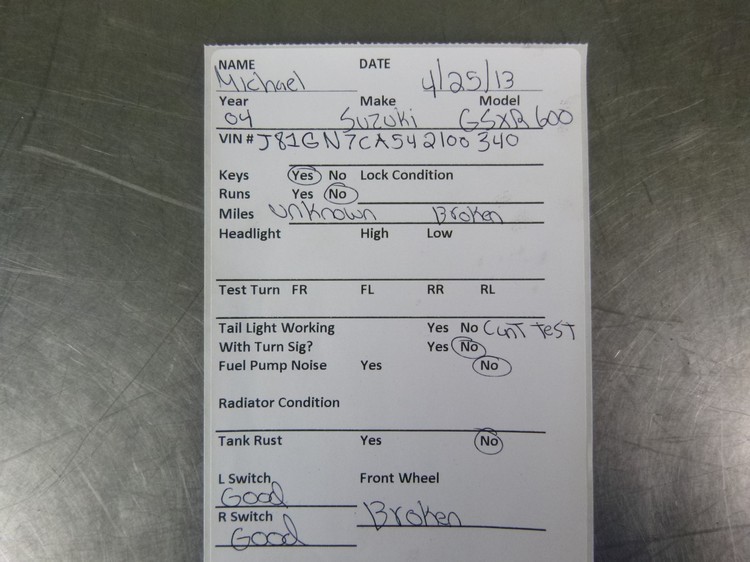 NAME DATE
Michael 4/25/13
Year Make Model
04 Suzuki GSXR 600
VIN # J81GN7CA542100340
Keys Yes No Lock Condition
Runs Yes No
Miles unknown Broken
Headlight High Low
Test Turn FR FL RR RL
Tail Light Working Yes No CanT TesT
With Turn Sig? Yes No
Fuel Pump Noise Yes No
Radiator Condition
Tank Rust Yes No
L Switch Front Wheel
Good
R Switch Broken
Good